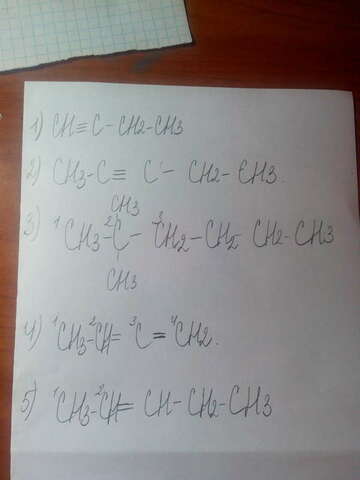 1) CH≡C-CH2-CH3
2) CH3-C≡ C- CH2-CH3.
CH3
3) ¹CH3-²C-³CH2-CH2-CH2-CH3
CH3
4) ¹CH3-²CH=³C=⁴CH2.
5) ¹CH3-²CH=CH-CH2-CH3